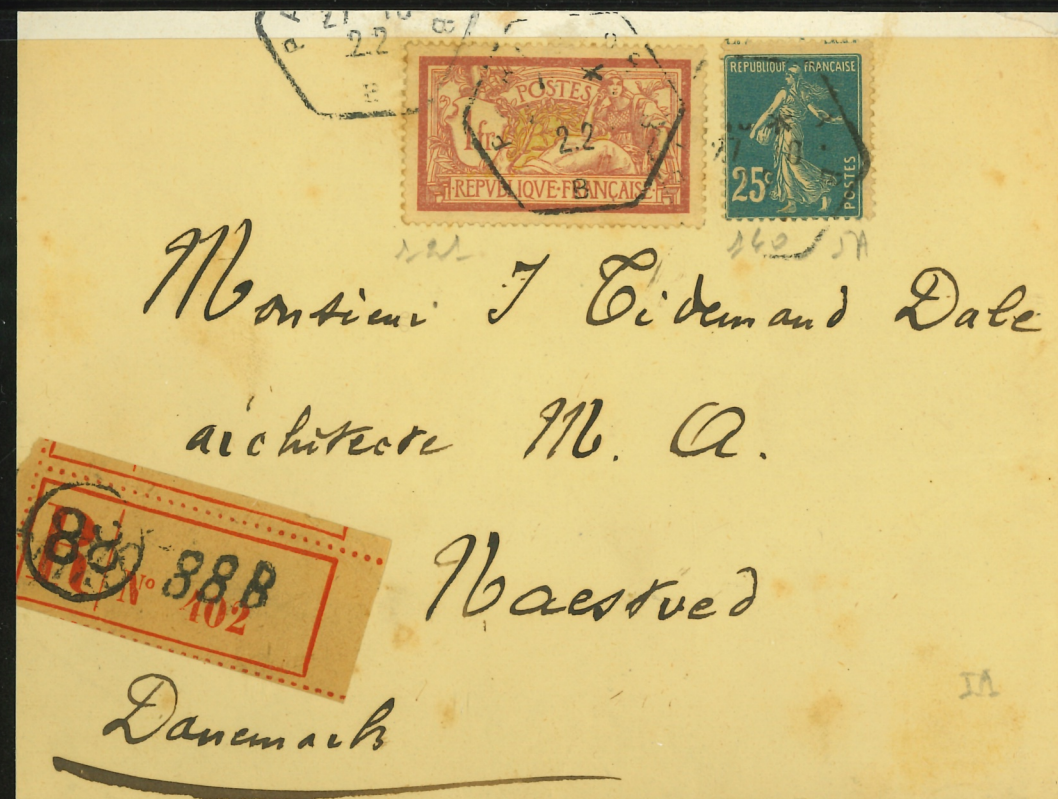 22
B
POSTES
1 fr
22
B
REPVBLIQVE·FRANÇAISE
REPUBLIQUE FRANÇAISE
25c
POSTES
121
140
Monsieur J Tidemand Dale
architecte M. A.
R
88
No 88B
402
Naestved
Danemark